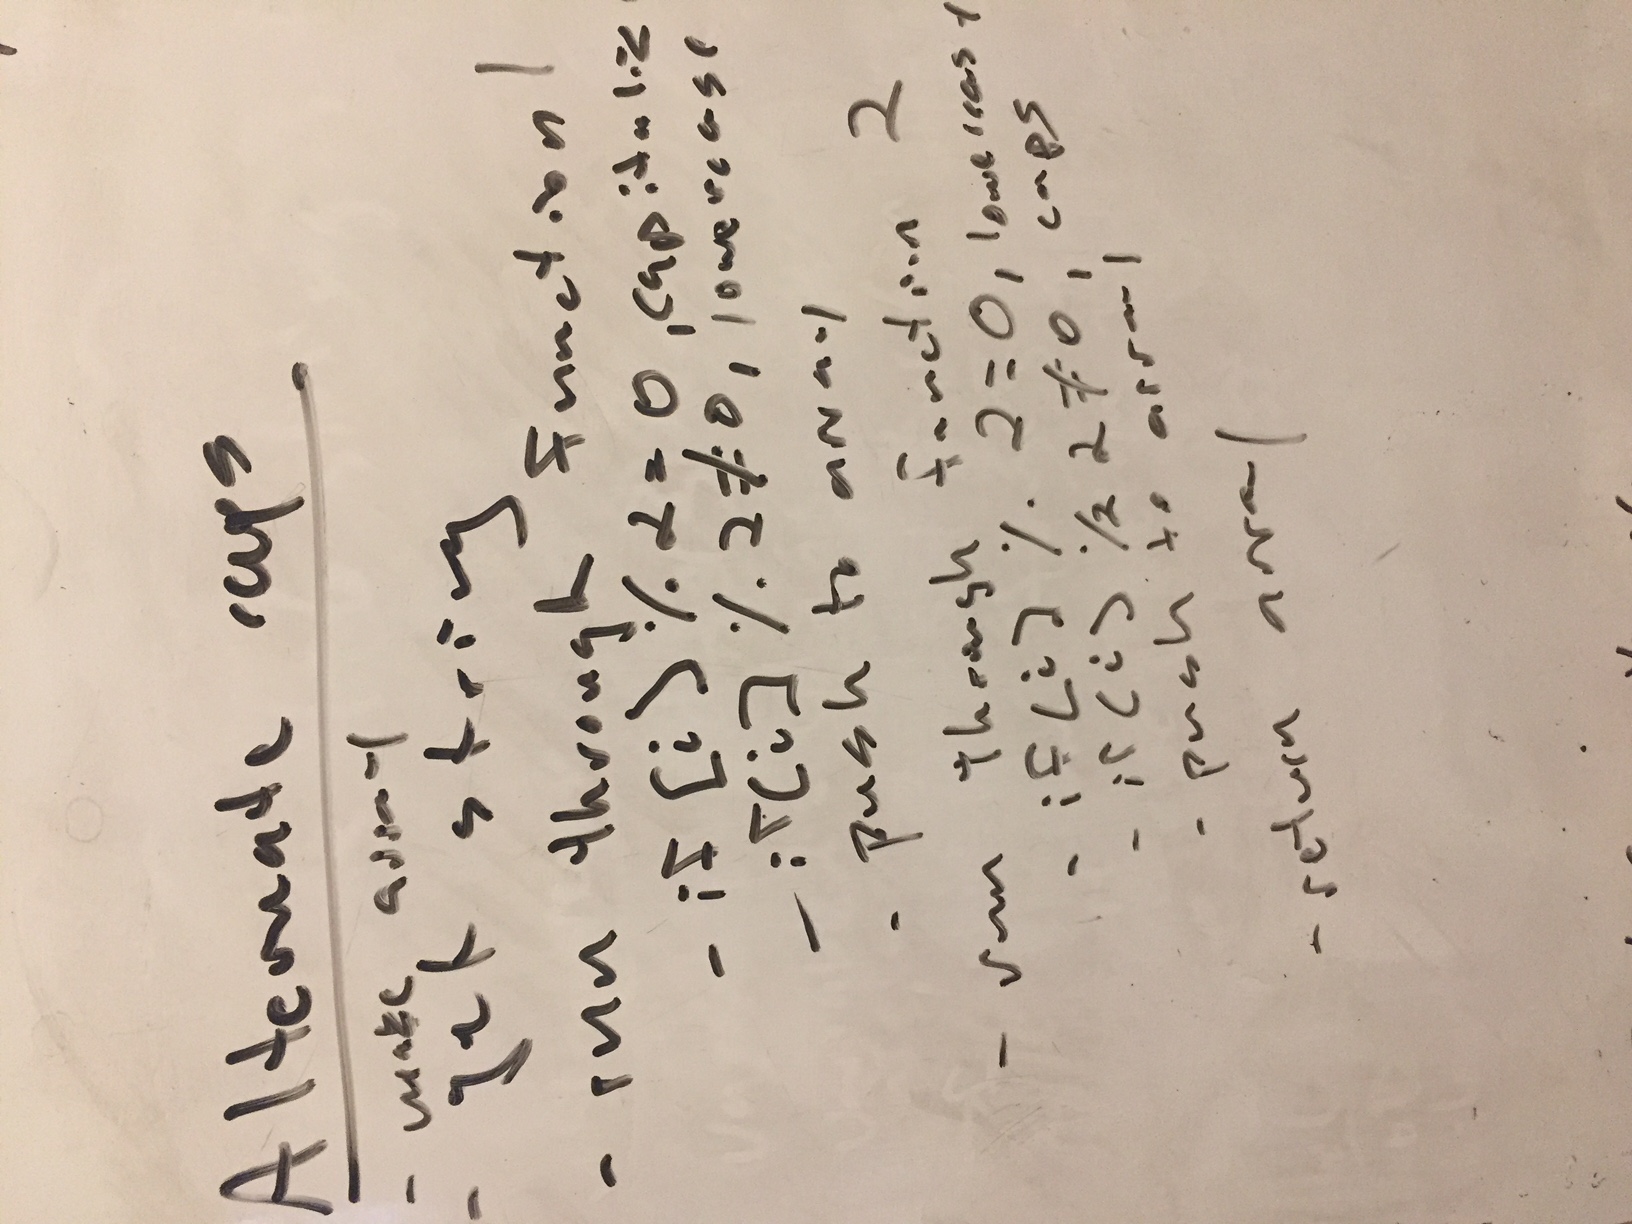 Alternate caps
- make array
- get string
- run through function 1
- if [i] % 2 = 0, capitalize
- if [i] % 2 ≠ 0, lowercase
- push to array
- run through function 2
- if [i] % 2 = 0, lowercase
- if [i] % 2 ≠ 0, caps
- push to array
- return array